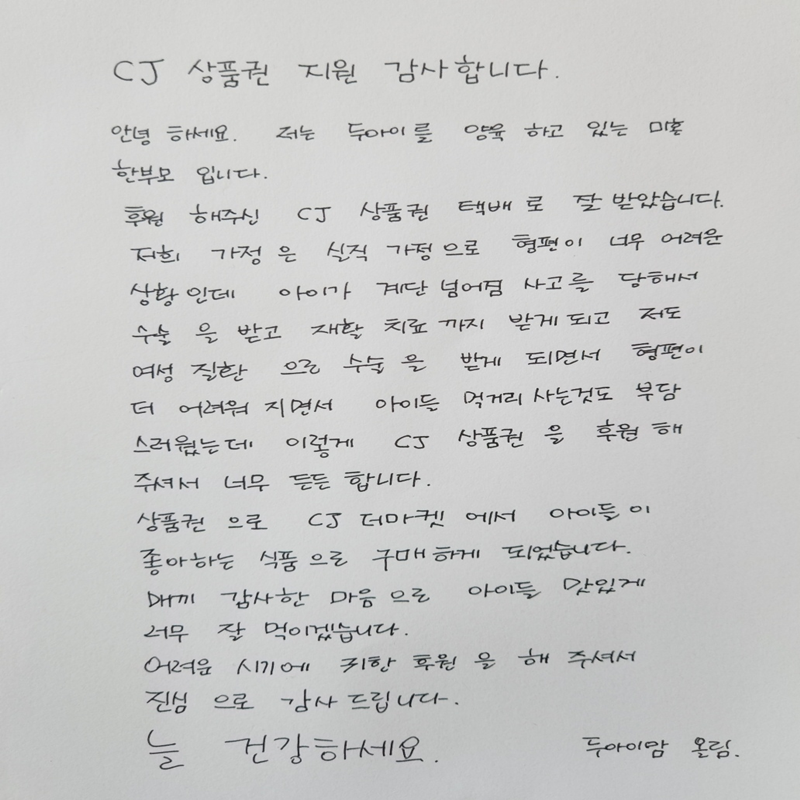 CJ 상품권 지원 감사합니다.
안녕 하세요. 저는 두아이를 양육 하고 있는 미혼
한부모 입니다.
후원 해주신 CJ 상품권 택배로 잘 받았습니다.
저희 가정은 실직 가정으로 형편이 너무 어려운
상황인데 아이가 계단 넘어점 사고를 당해서
수술 을 받고 재활 치료까지 받게되고 저도
여성 질환 으로 수술 을 받게 되면서 형편이
더 어려워 지면서 아이들 먹거리 사는것도 부담
스러웠는데 이렇게 CJ 상품권 을 후원 해
주셔서 너무 든든 합니다.
상품권 으로 CJ 더마켓 에서 아이들이
좋아하는 식품으로 구매하게 되었습니다.
매끼 감사한 마음으로 아이들 맛있게
너무 잘 먹이겠습니다.
어려운 시기에 귀한 후원 을 해 주셔서
진심 으로 감사드립니다.
늘 건강하세요. 두아이맘 올림.